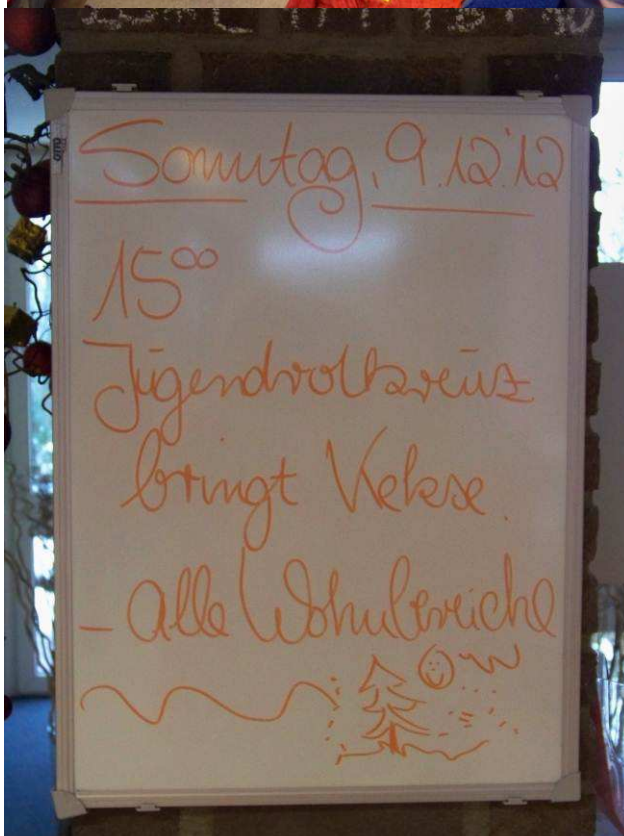 Sonntag, 9.12.'12
15⁰⁰
Jugendrotkreuz
bringt Kekse.
- alle Wohnbereiche